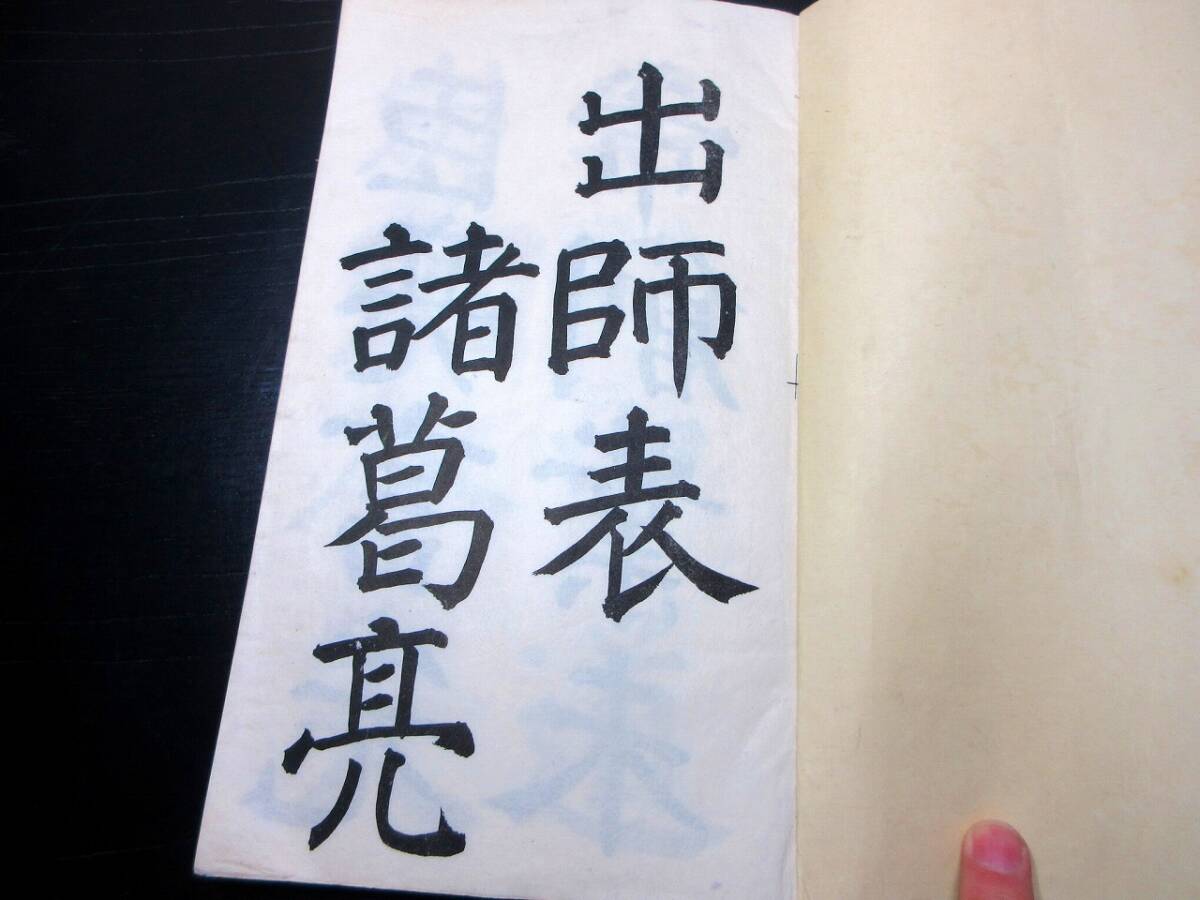 出師表
諸葛亮